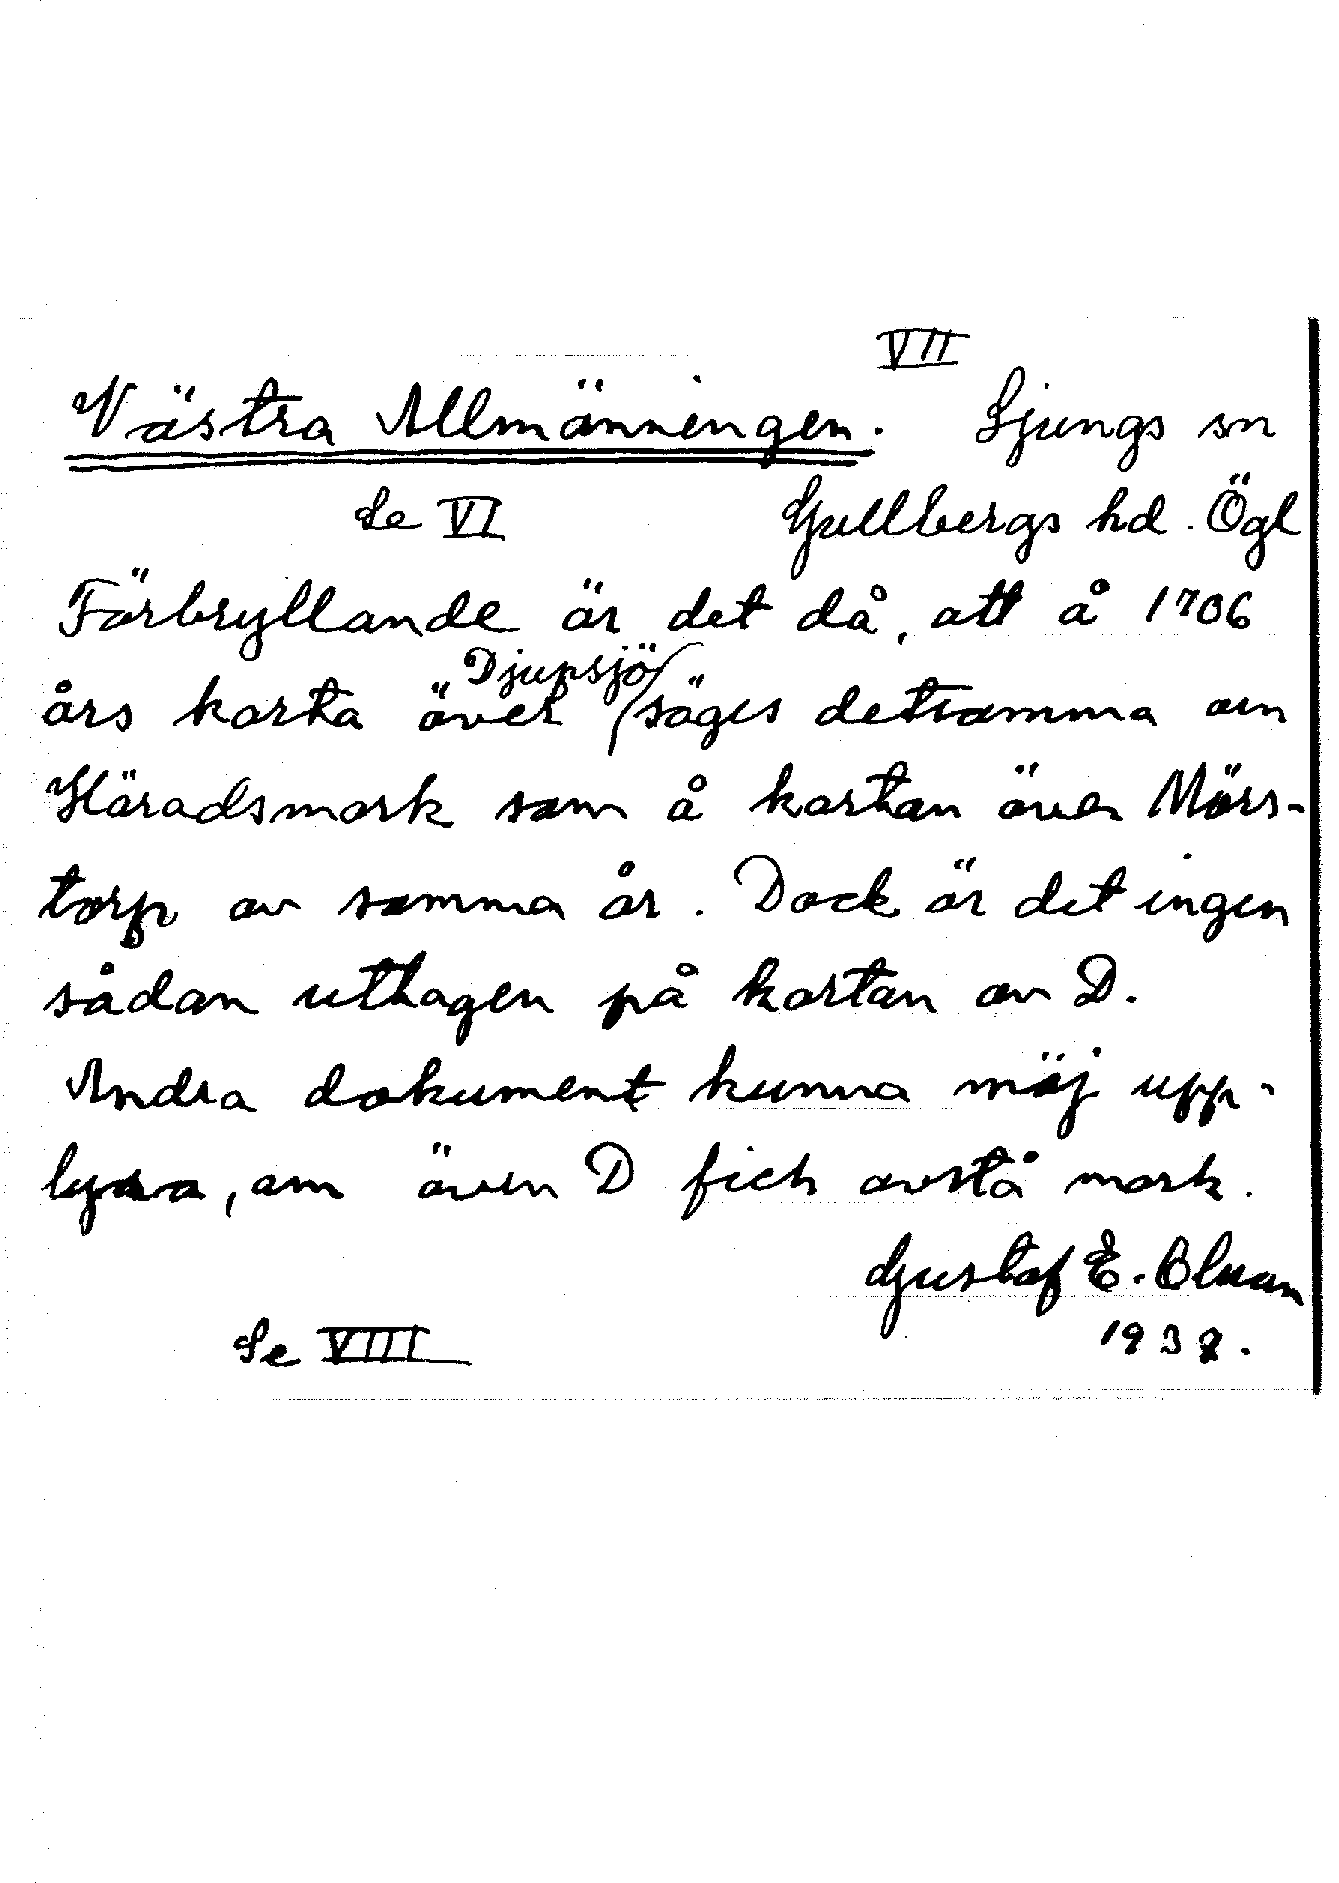 VII
Västra Allmänningen. Ljungs sn
Se VI Gullbergs hd. Ögl
Förbryllande är det då, att å 1706
års karta över Djupsjö säges detsamma om
Häradsmark som å kartan över Mörs-
torp av samma år. Dock är det ingen
sådan uttagen på kartan av D.
Andra dokument kunna möj upp-
lysa, om även D fick avstå mark.
Gustaf E. Olsson
Se VIII 1938.